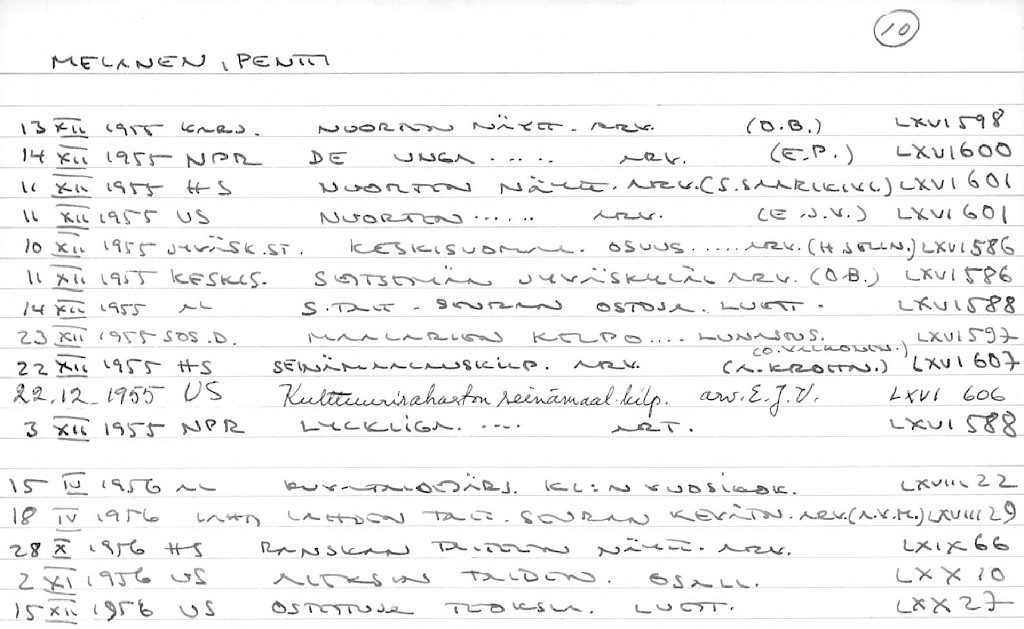 10
MELANEN, PENTTI
13 XII 1955 KARJ. NUORTEN NÄYTT. ARV. (O.B.) LXVI 598
14 XII 1955 NPR DE UNGA ..... ARV. (E.P.) LXVI 600
11 XII 1955 HS NUORTEN NÄYTT. ARV. (S. SAARIKIVI) LXVI 601
11 XII 1955 US NUORTEN ...... ARV. (E.J.V.) LXVI 601
10 XII 1955 JYVÄSK.ST. KESKISUOMAL. OSUUS ..... ARV. (H. SELIN.) LXVI 586
11 XII 1955 KESKIS. SEITSEMÄN JYVÄSKYLÄL. ARV. (O.B.) LXVI 586
14 XII 1955 AL S.TAIT - SEURAN OSTOJA. LUETT. LXVI 588
23 XII 1955 SOS.D. MAALARIEN KILPO .... LUNASTUS. LXVI 597
(O. VALKONEN.)
22 XII 1955 HS SEINÄMAALAUSKILP. ARV. (A. KROHN.) LXVI 607
22.12. 1955 US Kulttuurirahaston seinämaal.kilp. arv. E.J.V. LXVI 606
3 XII 1955 NPR LYCKLIGA. .... ART. LXVI 588
15 IV 1956 AL KUVATAIDEJÄRJ. KL:N VUOSIKOK. LXVIII 22
18 IV 1956 LAHTI LAHDEN TAIT. SEURAN KEVÄTN. ARV. (A.V.M.) LXVIII 29
28 X 1956 HS RANSKAN TAITEEN NÄYTT. ARV. LXIX 66
2 XI 1956 US TAIDEN. OSALL. LXX 10
15 XII 1956 US OSTETTUJA TEOKSIA. LUETT. LXX 27